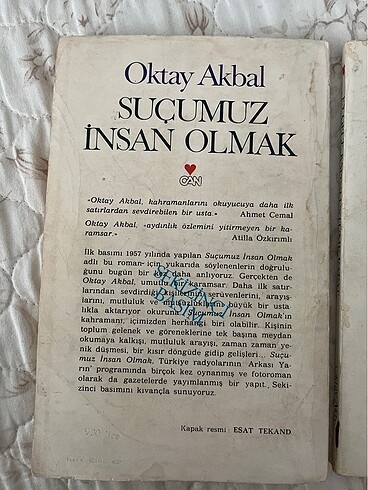 Oktay Akbal
SUÇUMUZ
İNSAN OLMAK
CAN
«Oktay Akbal, kahramanlarını okuyucuya daha ilk
satırlardan sevdirebilen bir usta.» Ahmet Cemal
Oktay Akbal, «aydınlık özlemini yitirmeyen bir ka-
ramsar.» Atilla Özkırımlı
İlk basımı 1957 yılında yapılan Suçumuz İnsan Olmak
adlı bu roman için, yukarıda söylenenlerin doğrulu-
ğunu bugün bir kez daha anlıyoruz. Gerçekten de
Oktay Akbal, umutlu bir karamsar. Daha ilk satır-
larından sevdirdiği kişilerinin serüvenlerini, arayış-
larını, mutluluk ve mutsuzluklarını büyük bir usta-
lıkla aktarıyor okuruna. Suçumuz İnsan Olmak'ın
kahramanı, içimizden herhangi biri olabilir. Kişinin
toplum gelenek ve göreneklerine tek başına meydan
okumaya kalkışı, mutluluk arayışı, zaman zaman ye-
nik düşmesi, bir kısır döngüde gidip gelişleri... Suçu-
muz İnsan Olmak, Türkiye radyolarının Arkası Ya-
rın' programında birçok kez oynanmış ve fotoroman
olarak da gazetelerde yayımlanmış bir yapıt. Seki-
zinci basımını kıvançla sunuyoruz.
SEKİZİNCİ
BASIM
Kapak resmi: ESAT TEKAND